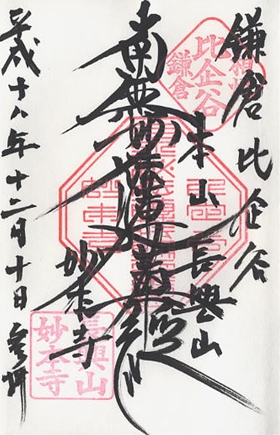 鎌倉比企谷
本山長興山
南無妙法蓮華経
妙本寺
平成十八年十二月十日
比企谷
鎌倉
長興山
妙本寺